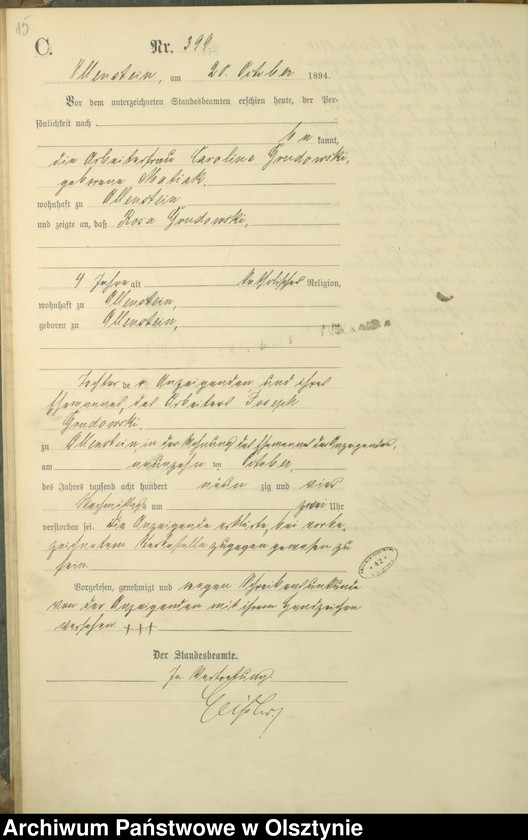 15
C.
Nr. 399.
Allenstein, am 20. October 1894.
Vor dem unterzeichneten Standesbeamten erschien heute, der Per-
sönlichkeit nach
be kannt,
die Arbeiterfrau Caroline Grudowski,
geborene Matiak,
wohnhaft zu Allenstein
und zeigte an, daß Rosa Grudowski,
4 Jahre alt katholischer Religion,
wohnhaft zu Allenstein,
geboren zu Allenstein,
Tochter der Anzeigenden und ihres
Ehemannes, des Arbeiters Joseph
Grudowski.
zu Allenstein, in der Wohnung des Ehemannes der Anzeigenden,
am neunzehn ten October
des Jahres tausend acht hundert neun zig und vier
Nachmittags um zwei Uhr
verstorben sei. Die Anzeigende erklärte, bei vorbe-
zeichnetem Sterbefalle zugegen gewesen zu
sein.
Vorgelesen, genehmigt und wegen Schreibensunkunde
von der Anzeigenden mit ihrem Handzeichen
versehen +++
Der Standesbeamte.
In Vertretung.
Archiwum Państwowe w Olsztynie